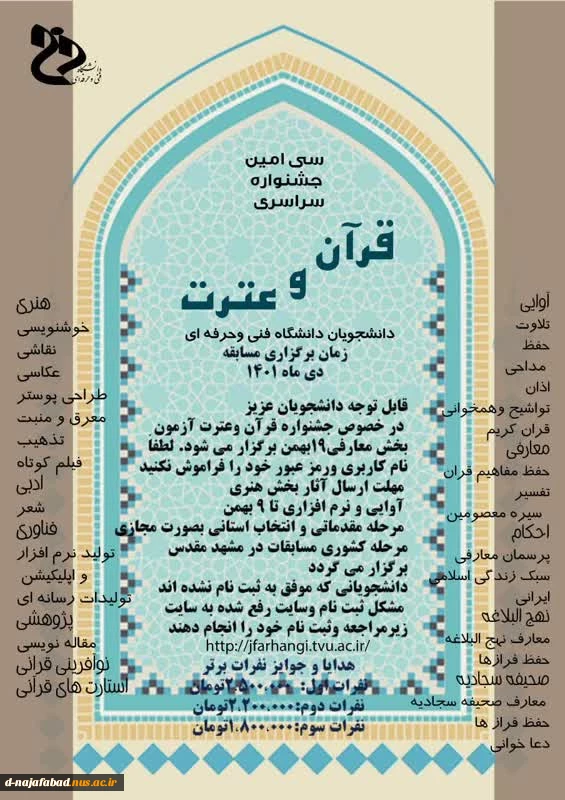 دانشگاه
فنی و حرفه‌ای
سی امین
جشنواره
سراسری
قرآن
و
عترت
دانشجویان دانشگاه فنی وحرفه ای
زمان برگزاری مسابقه
دی ماه ۱۴۰۱
قابل توجه دانشجویان عزیز
در خصوص جشنواره قرآن وعترت آزمون
بخش معارفی۱۹بهمن برگزار می شود. لطفا
نام کاربری ورمز عبور خود را فراموش نکنید
مهلت ارسال آثار بخش هنری
آوایی و نرم افزاری تا ۹ بهمن
مرحله مقدماتی و انتخاب استانی بصورت مجازی
مرحله کشوری مسابقات در مشهد مقدس
برگزار می گردد
دانشجویانی که موفق به ثبت نام نشده اند
مشکل ثبت نام وسایت رفع شده به سایت
زیرمراجعه وثبت نام خود را انجام دهند
http://jfarhangi.tvu.ac.ir/
هدایا و جوایز نفرات برتر
نفرات اول: ۲.۵۰۰.۰۰۰تومان
نفرات دوم:۲.۲۰۰.۰۰۰تومان
نفرات سوم:۱.۸۰۰.۰۰۰تومان
آوایی
تلاوت
حفظ
مداحی
اذان
تواشیح وهمخوانی
قران کریم
معارفی
حفظ مفاهیم قران
تفسیر
سیره معصومین
احکام
پرسمان معارفی
سبک زندگی اسلامی
ایرانی
نهج البلاغه
معارف نهج البلاغه
حفظ فرازها
صحیفه سجادیه
معارف صحیفه سجادیه
حفظ فراز ها
دعا خوانی
هنری
خوشنویسی
نقاشی
عکاسی
طراحی پوستر
معرق و منبت
تذهیب
فیلم کوتاه
ادبی
شعر
فناوری
تولید نرم افزار
و اپلیکیشن
تولیدات رسانه ای
پژوهشی
مقاله نویسی
نوآفرینی قرآنی
استارت های قرآنی
d-najafabad.nus.ac.ir